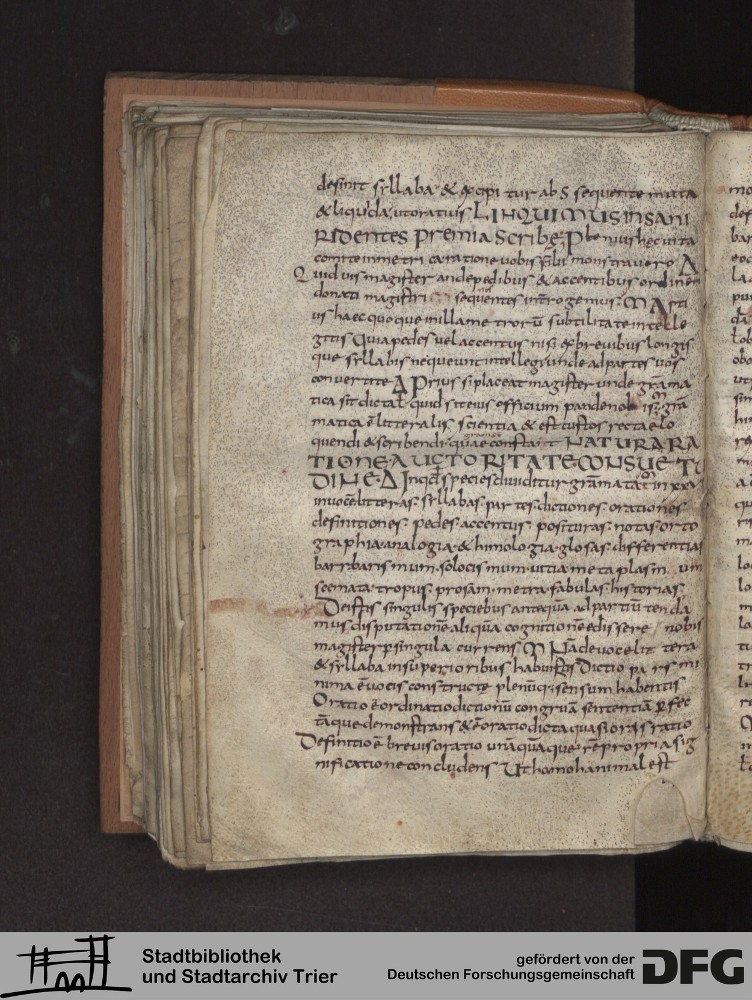 desinit syllaba & excipi tur ab S sequente muta
& liquida, ut oratius LINQUIMUS INSANI
RIDENTES Premia Scribe; Plenius hec uita
comite in metri ca ratione uobis monstrauero A
Quid uis magister an de pedibus & accentibus ordinem
donati magistri sequentes interrogemus M A
us haec quoque in illa metrorū subtilitate intelle
getis Quia pedes uel accentus nisi ex breuibus longis
que syllabis nequeunt intellegi unde ad partes uos
conuertite A Prius si placeat magister unde grama
tica sit dicta & quid sit eius officium pande nob
matica ē litteralis scientia & est custos recte lo
quendi & scribendi quae constat NATURA RA
TIONE AUCTORITATE CONSUE TU
DINE Δ In quod species diuiditur gramatata in xx
in uoce litteras syllabas partes dictiones orationes
definitiones pedes accentus posituras notas orto
graphia analogia & himologia glosas differentias
barbarismum solocismum uitia metaplasm um
scemata tropus prosam metra fabulas historias
De istis singulis speciebus antequā ad partiū tenda
mus disputationē aliquā cognitionē edissere nobis
magister per singula currens M Nā de uoce lit tera
& syllaba in superioribus habuistis Dictio pars mi
nima ē uocis constructe plenūq; sensum habentis
Oratio ē ordinatio dictionū congruā sententiā perfec
tāque demonstrans & ē oratio dicta quasi oris ratio
Definitio ē breuis oratio unāquāque rē propria sig
nificatione concludens Ut homo hanimal est
Stadtbibliothek
und Stadtarchiv Trier
gefördert von der
Deutschen Forschungsgemeinschaft
DFG